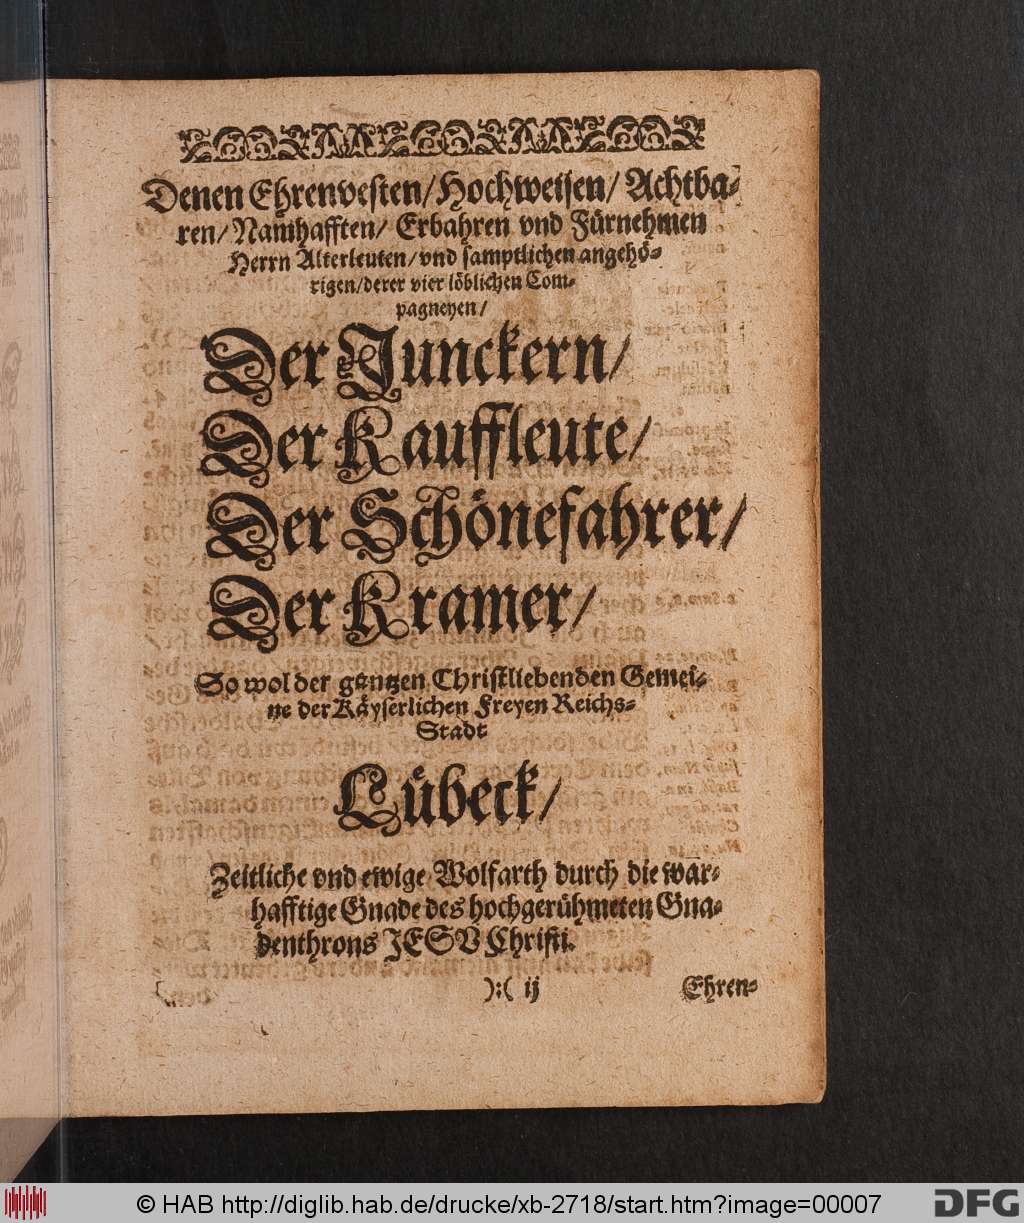 Denen Ehrenvesten/ Hochweisen/ Achtba-
ren/ Namhafften/ Erbahren vnd Fürnehmen
Herrn Alterleuten/ vnd samptlichen angehö-
rigen/ derer vier löblichen Com-
pagneyen/
Der Junckern/
Der Kauffleute/
Der Schönefahrer/
Der Kramer/
So wol der gantzen Christliebenden Gemei-
ne der Käyserlichen Freyen Reichs-
Stadt
Lübeck/
Zeitliche vnd ewige Wolfarth durch die war-
hafftige Gnade des hochgerühmeten Gna-
denthrons JESV Christi.
):( ij
Ehren-
© HAB http://diglib.hab.de/drucke/xb-2718/start.htm?image=00007
DFG